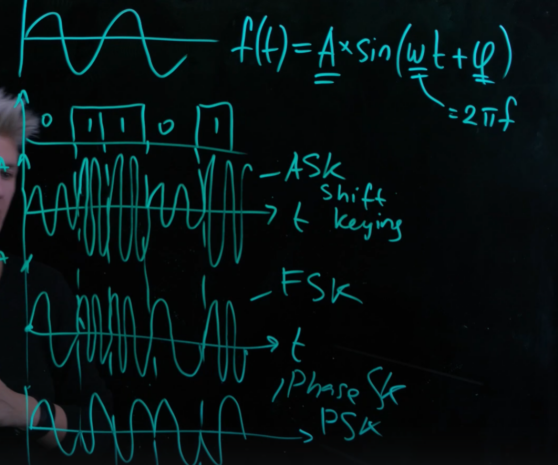 f(t) = A × sin(ωt + φ)
= 2πf
0 1 1 0 1
A
– ASK
shift
keying
t
A
– FSK
t
Phase SK
PSK